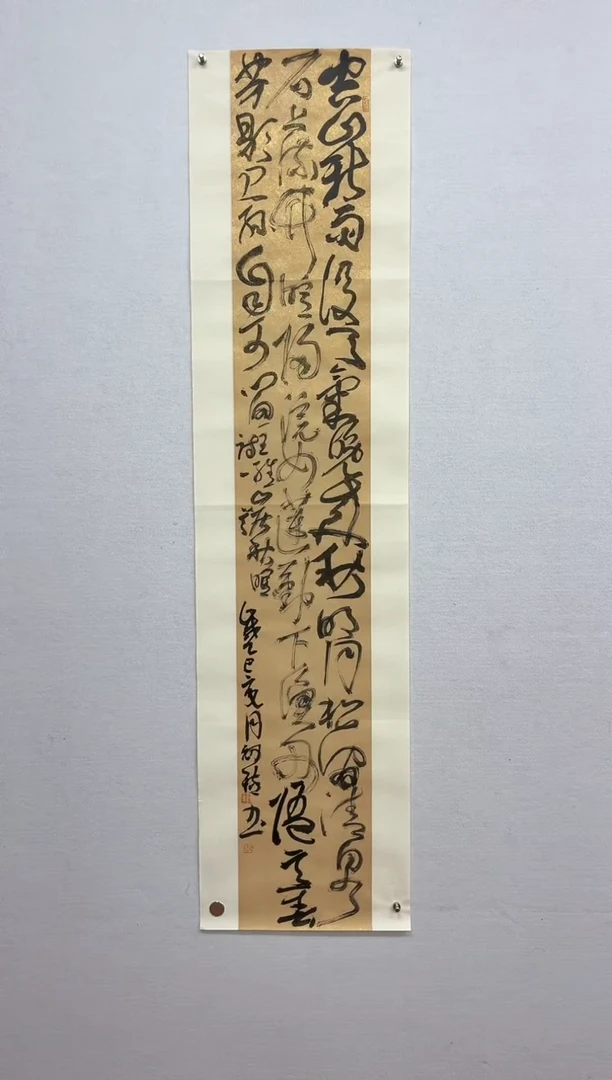 空山新雨後天氣晚來秋明月松間清泉
石上流竹喧歸浣女蓮動下漁舟隨意春
芳歇王孫自可留王維山居秋暝歲乙巳夏月書